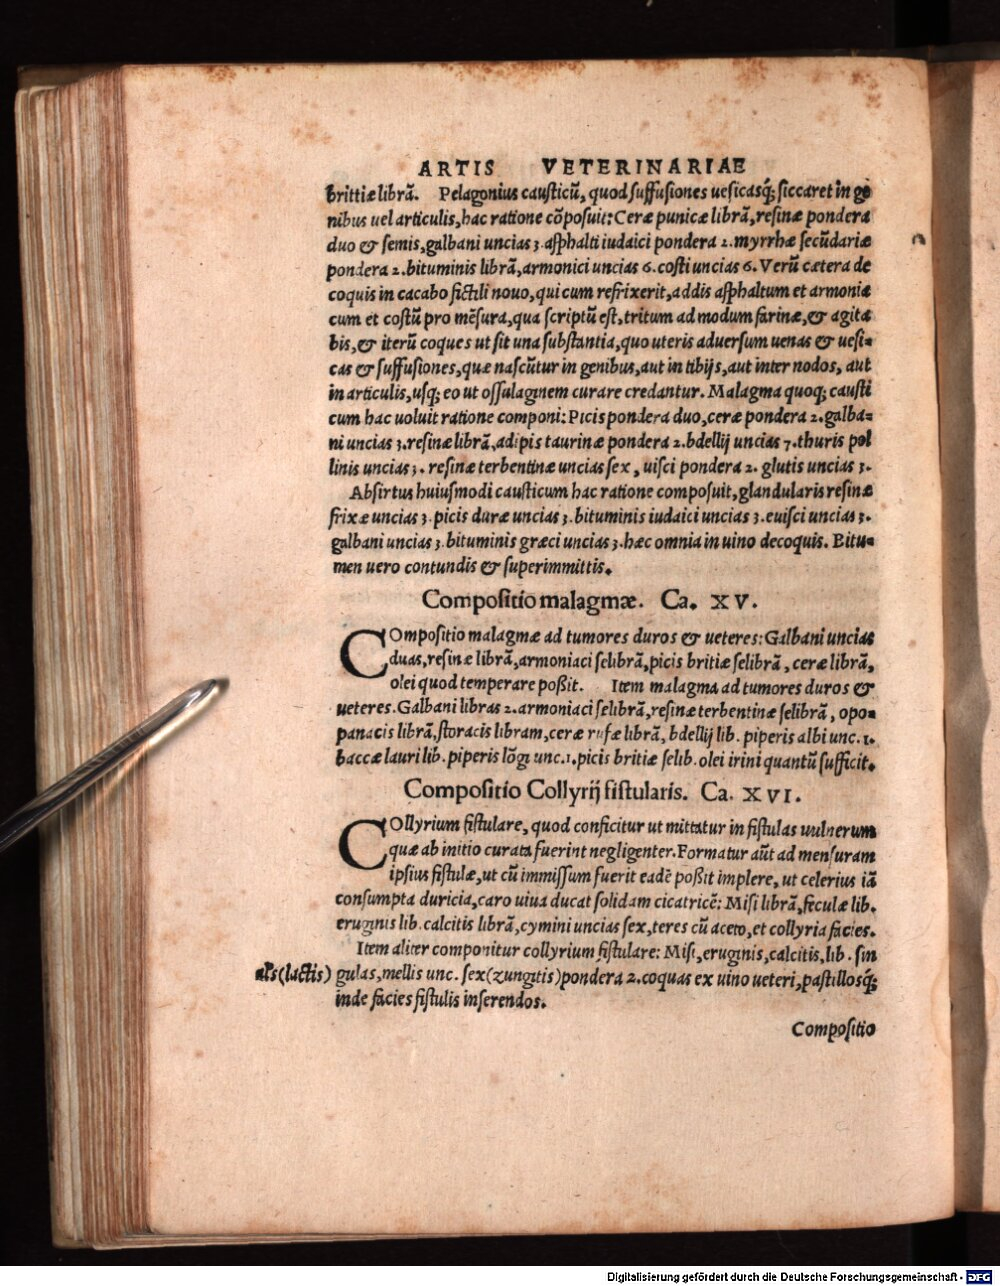 ARTIS VETERINARIAE
brittiæ librã. Pelagonius causticũ, quod suffusiones uesicasq́; siccaret in ge
nibus uel articulis, hac ratione cõposuit: Ceræ punicæ librã, resinæ pondera
duo & semis, galbani uncias 3. asphalti iudaici pondera 2. myrrhæ secũdariæ
pondera 2. bituminis librã, armonici uncias 6. costi uncias 6. Verũ cætera de
coquis in cacabo fictili nouo, qui cum refrixerit, addis asphaltum et armonia
cum et costũ pro mẽsura, qua scriptũ est, tritum ad modum farinæ, & agita
bis, & iterũ coques ut sit una substantia, quo uteris aduersum uenas & uesi=
cas & suffusiones, quæ nascũtur in genibus, aut in tibijs, aut inter nodos, aut
in articulis, usq; eo ut ossulaginem curare credantur. Malagma quoq; causti
cum hac uoluit ratione componi: Picis pondera duo, ceræ pondera 2. galba=
ni uncias 3. resinæ librã, adipis taurinæ pondera 2. bdellij uncias 7. thuris pol
linis uncias 3. resinæ terbentinæ uncias sex, uisci pondera 2. glutis uncias 3.
Absirtus huiusmodi causticum hac ratione composuit, glandularis resinæ
frixæ uncias 3. picis duræ uncias 3. bituminis iudaici uncias 3. euisci uncias 3.
galbani uncias 3. bituminis græci uncias 3. hæc omnia in uino decoquis. Bitu=
men uero contundis & superimmittis.
Compositio malagmæ. Ca. XV.
COmpositio malagmæ ad tumores duros & ueteres: Galbani uncias
duas, resinæ librã, armoniaci selibrã, picis britiæ selibrã, ceræ librã,
olei quod temperare poßit. Item malagma ad tumores duros &
ueteres. Galbani libras 2. armoniaci selibrã, resinæ terbentinæ selibrã, opo=
panacis librã, storacis libram, ceræ rufæ librã, bdellij lib. piperis albi unc. 1.
baccæ lauri lib. piperis lõgi unc. 1. picis britiæ selib. olei irini quantũ sufficit.
Compositio Collyrij fistularis. Ca. XVI.
COllyrium fistulare, quod conficitur ut mittatur in fistulas uulnerum
quæ ab initio curata fuerint negligenter. Formatur aũt ad mensuram
ipsius fistulæ, ut cũ immissum fuerit eadẽ poßit implere, ut celerius iã
consumpta duricia, caro uiua ducat solidam cicatricẽ: Misi librã, feculæ lib.
eruginis lib. calcitis librã, cymini uncias sex, teres cũ aceto, et collyria facies.
Item aliter componitur collyrium fistulare: Misi, eruginis, calcitis, lib. sin
als (lactis) gulas, mellis unc. sex (zungitis) pondera 2. coquas ex uino ueteri, pastillosq́;
inde facies fistulis inserendos.
Compositio
Digitalisierung gefördert durch die Deutsche Forschungsgemeinschaft - DFG